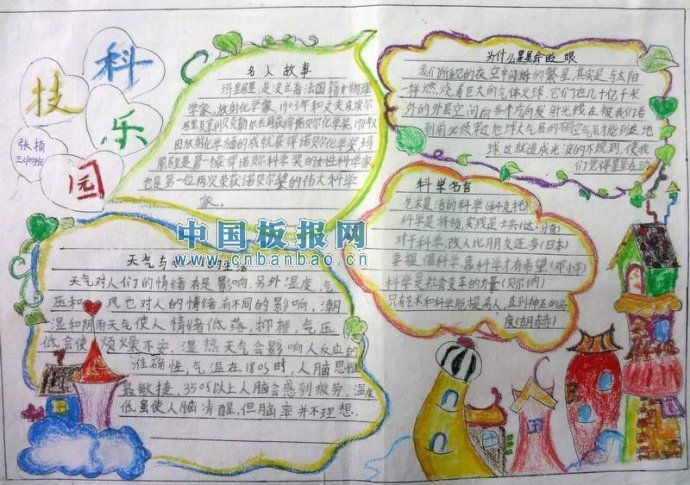 科技乐园
张楠
名人故事
玛丽居里是波兰裔法国籍物理
学家、放射化学家,1903年和丈夫皮埃尔
居里及亨利贝克勒尔共同获得诺贝尔化学奖,1911年又
因放射化学方面的成就获得诺贝尔化学奖玛
丽居里是第一位获得诺贝尔科学奖的女性科学家
也是第一位两次荣获诺贝尔奖的伟大科学
家。
为什么星星会眨眼
我们所见的夜空中闪烁的繁星,其实是与太阳
一样燃烧着巨大的气体火球,它们在几十亿千米
外的外层空间向各个方向发射光线在被我们看
到前必须穿过地球大气层的不同空气层才能到达地
球这就造成光波的不规则,使我
们觉得星星在动
科学名言
艺术是活的科学
科学是将领,实践是士兵
对于科学,敌人比朋友还多(日本)
掌握科学靠科学才有希望(邓小平)
科学是社会变革的力量
只有艺术和科学能提高人,直到神灵的高
度
中国板报网
www.cnbanbao.cn
天气与
天气对人们的情绪有是影响,另外温度气
压和风也对人的情绪有不同的影响,潮
湿和阴雨天气使人情绪低落,抑郁,气压
低会使烦燥不安,湿热天气会影响人反应的
准确性,气温在180S时,人脑思维
最敏捷,350S以上人脑会感到疲劳,温度
低虽使人脑清醒,但脑率并不理想.